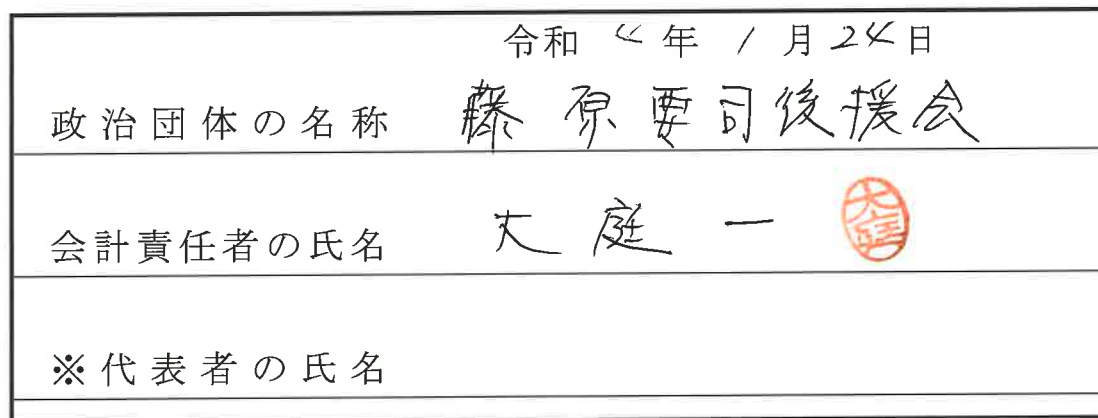 令和 4 年 1 月 24 日
政治団体の名称 藤原要司後援会
会計責任者の氏名 大庭一 大庭
※代表者の氏名